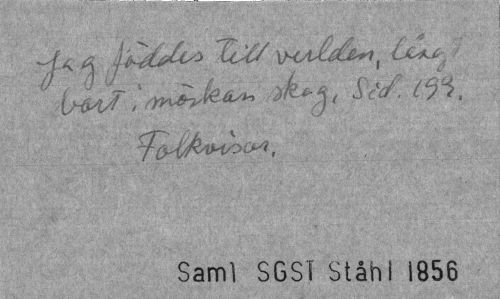 Jag föddes till verlden, långt
bort i mörkan skog, Sid. 199.
Folkvisor.
Saml SGST Ståhl 1856